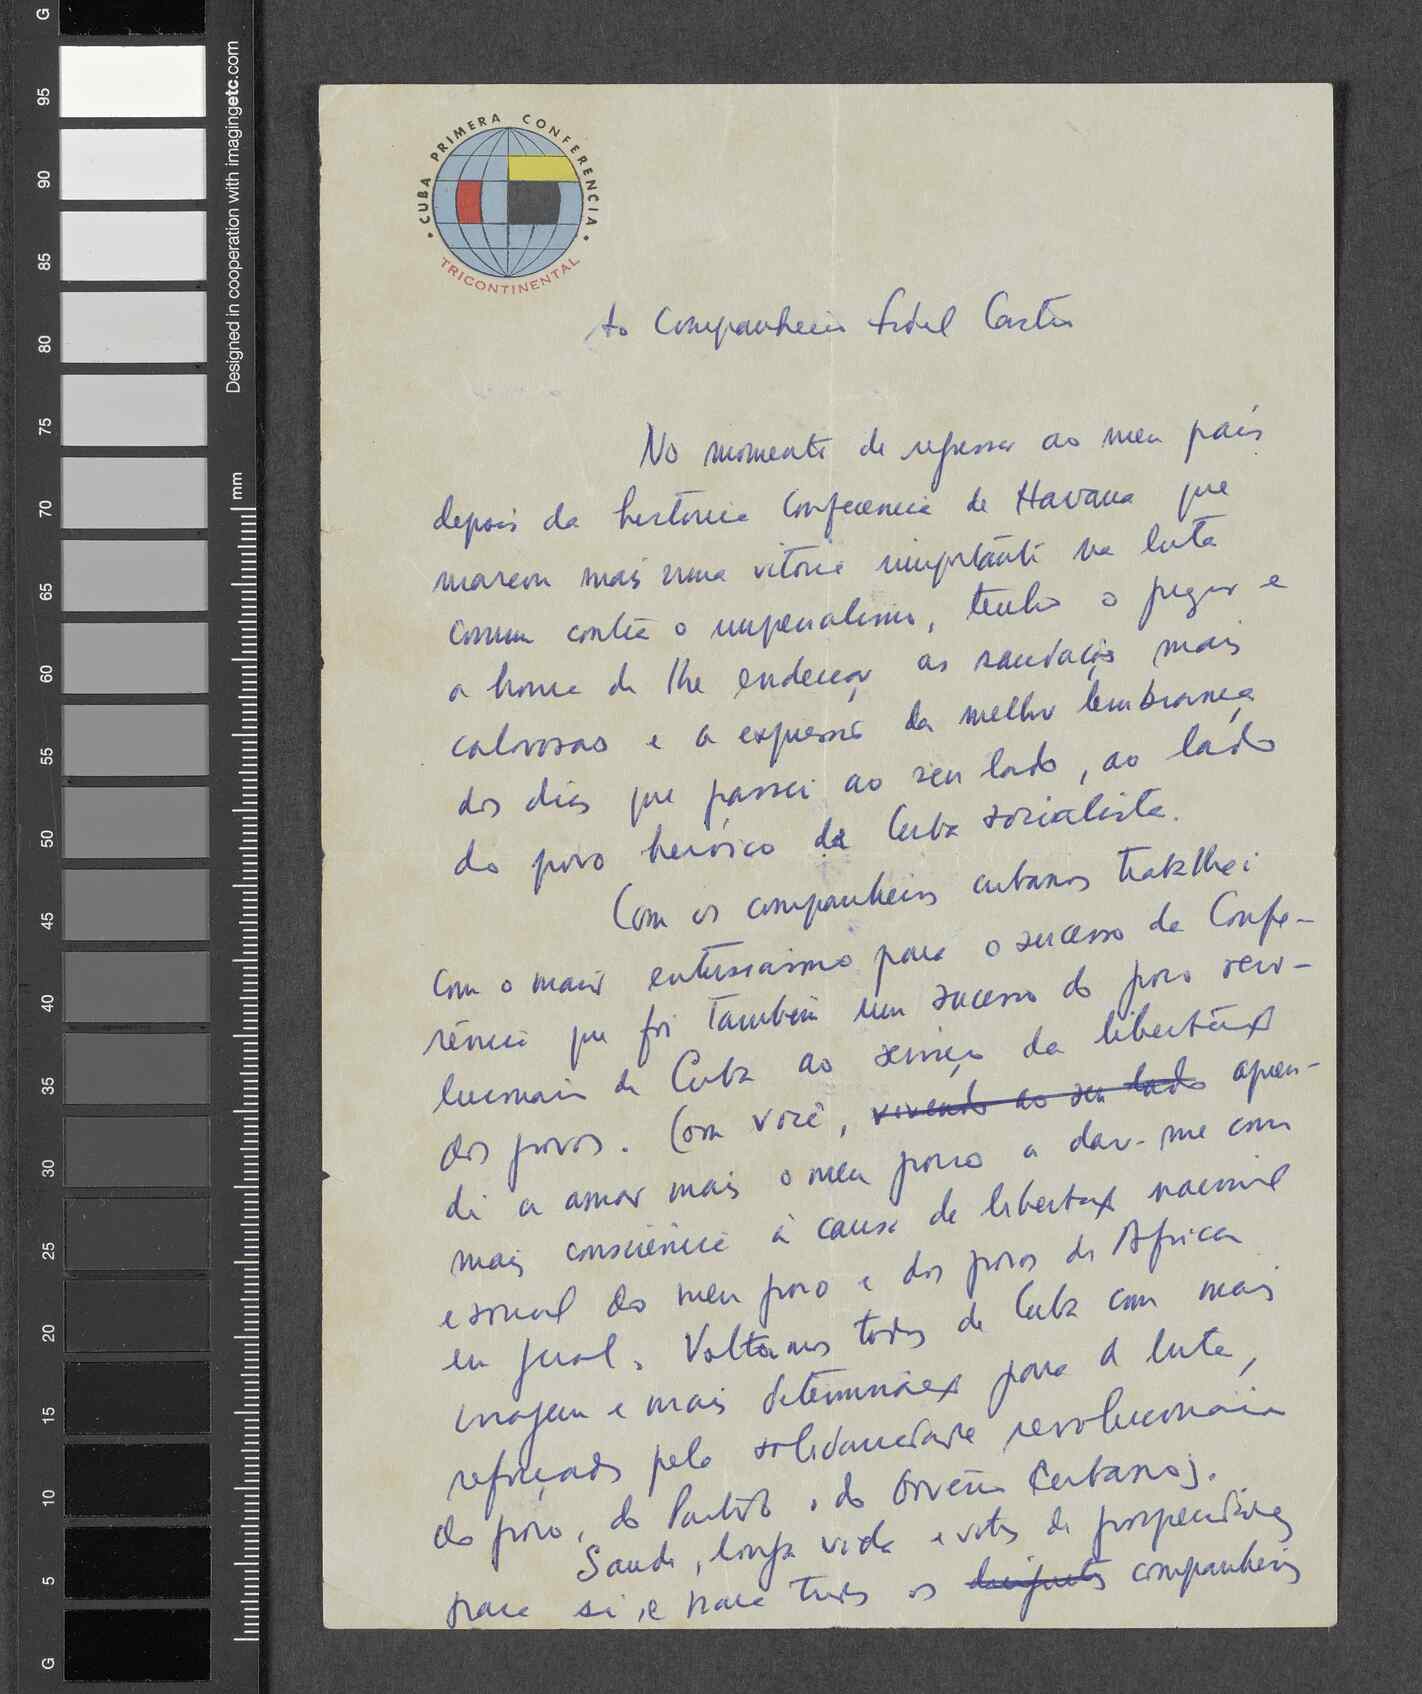 G
95
90
85
80
75
70
65
60
55
50
45
40
35
30
25
20
15
10
5
G
Designed in cooperation with imagingetc.com
mm
• CUBA PRIMERA CONFERENCIA •
TRICONTINENTAL
Ao Companheiro Fidel Castro
No momento de regressar ao meu país
depois da histórica Conferência de Havana que
marcou mais uma vitória importante na luta
comum contra o imperialismo, tenho o prazer e
a honra de lhe endereçar as saudações mais
calorosas e a expressão da melhor lembrança
dos dias que passei ao seu lado, ao lado
do povo heróico da Cuba socialista.
Com os companheiros cubanos trabalhei
com o maior entusiasmo para o sucesso da Confe-
rência que foi também um sucesso do povo revo-
lucionário de Cuba ao serviço da libertação
dos povos. Com você, vivendo ao seu lado apren-
di a amar mais o meu povo a dar-me com
mais consciência à causa de libertação nacional
e social do meu povo e dos povos de África
em geral. Voltamos todos de Cuba com mais
coragem e mais determinação para a luta,
reforçados pela solidariedade revolucionária
do povo, do Partido, do Govêrno Cubanos.
Saúde, longa vida e votos de prosperidades
para si, e para todos os companheiros